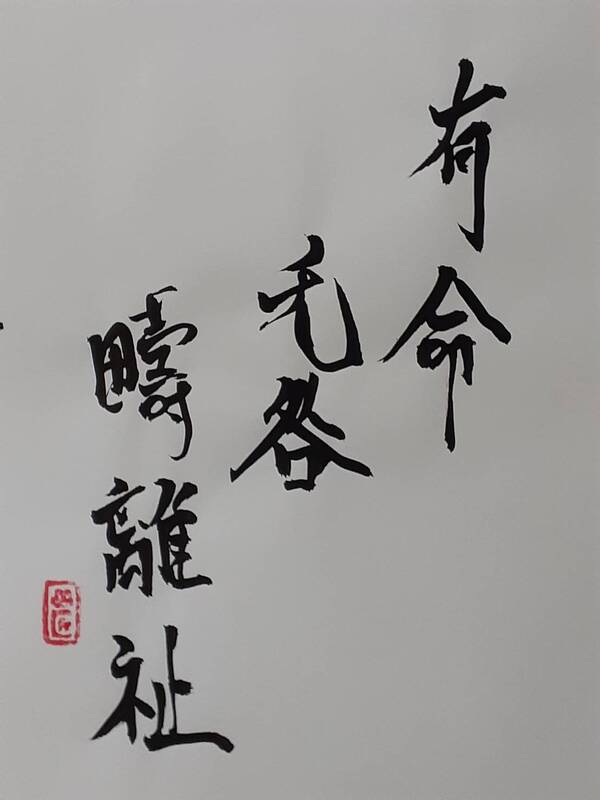 有命
无咎
疇離祉